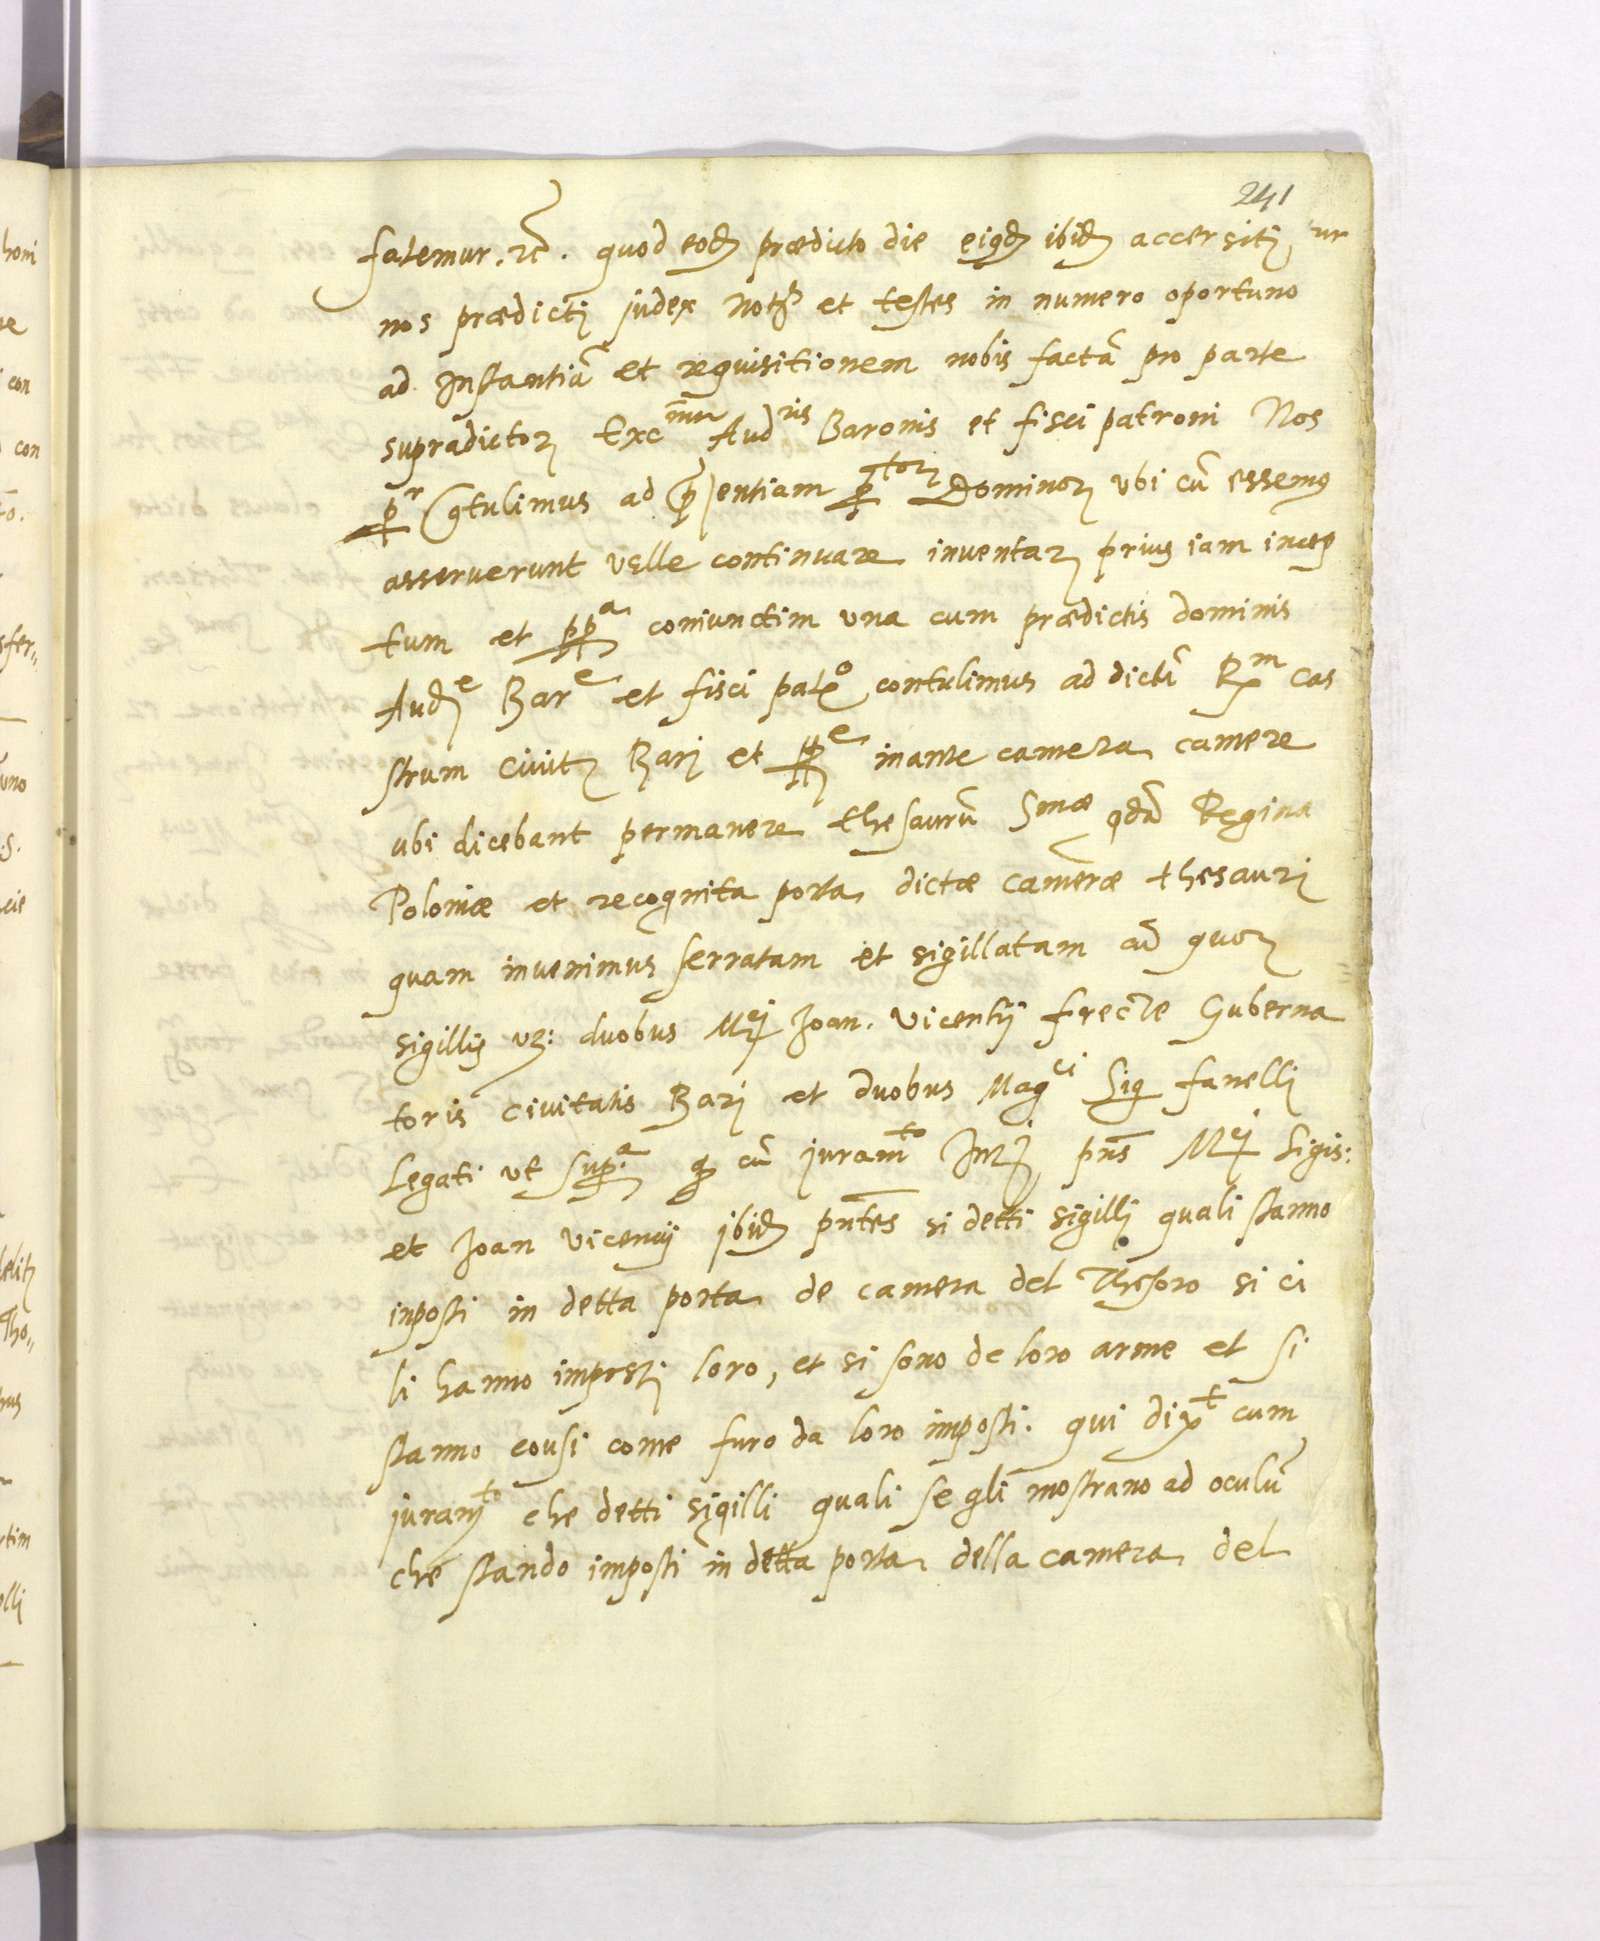 241
fatemur. etc. quod eod predicto die eiqd ibid accersiti, ur
nos prædicti judex Not et testes in numero oportuno
ad Instantiā et requisitionem nobis factā pro parte
supradictor Exc mu Aud ris Baronis et fisci patroni Nos
pr gtulimus ad pntiam p tor Dominor ubi cū essemus
asseruerunt velle continuare inventar prius iam incep
tum et pp a coniunctim una cum prædictis dominis
Aud e Bar e et fisci patr o contulimus ad dictū R m Cas
strum civit Bari et pp e inante camera camere
ubi dicebant permanere thesaurū Smæ qdā Regina
Poloniæ et recognita porta dictæ cameræ thesauri
quam invenimus serratam et sigillatam cū quor
sigillis vz: duobus Mci Joan. Vicentij frecte Guberna
toris Civitatis Bari et duobus Mag ci Sig fanelli
Legati ut sup a q cū juram to pns Mci Sigis:
et Joan Vicencij ibid pntes si detti sigilli quali stanno
inposti in detta porta de camera del Thesoro si ci
li hanno imposti loro, et si sono de loro arme et si
stanno cousi come furo da loro imposti. qui dix t cum
juram to che detti sigilli quali se gli mostrano ad oculū
che stando imposti in detta porta della camera del